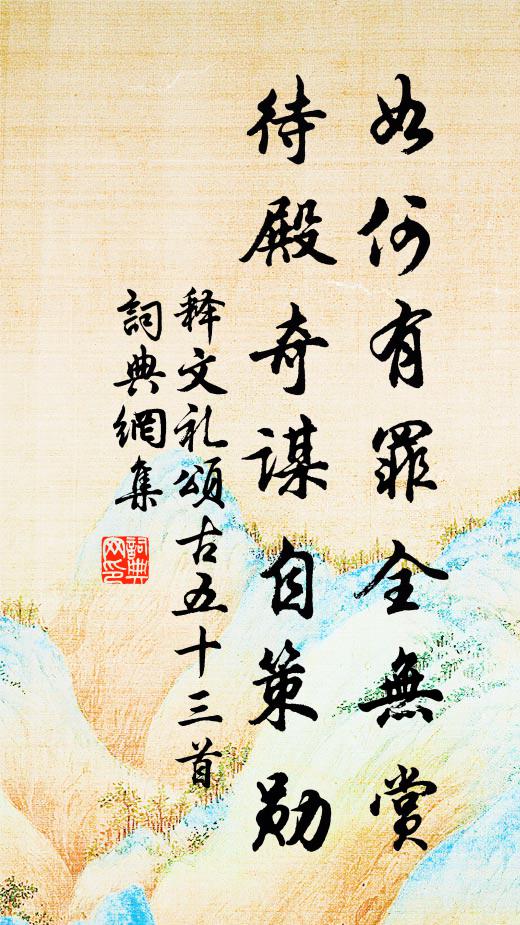 如何有罪全無賞
待殿奇谋自策勋
释文礼頌古五十三首
詞典網集
詞典网印